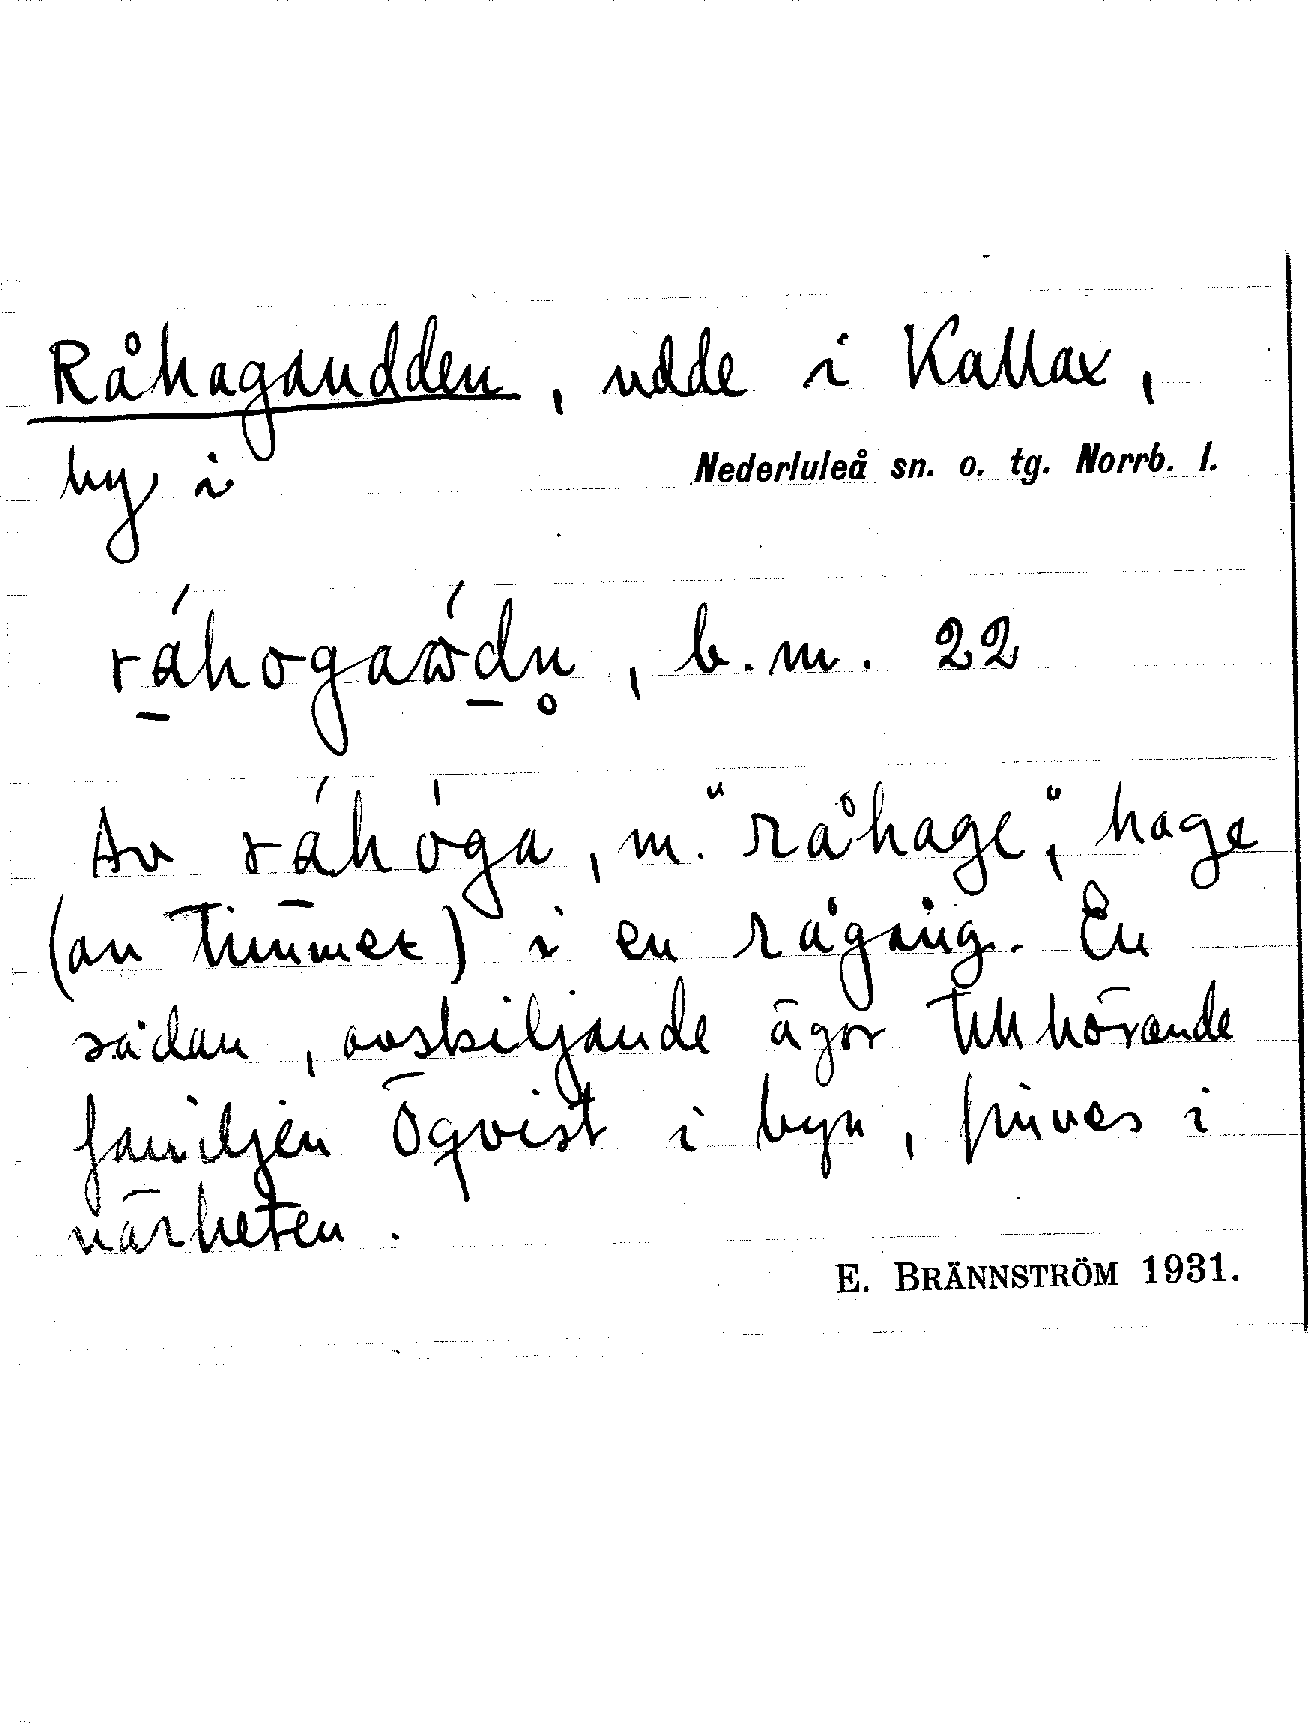 Råhagaudden, udde i Kallax,
by i Nederluleå sn. o. tg. Norrb. l.
b.m. 22
Av råhoga, m. "råhage", hage
(av timmer) i en rågång. En
sådan, avskiljande ägor tillhörande
familjen Öqvist i byn, finnes i
närheten.
E. BRÄNNSTRÖM 1931.